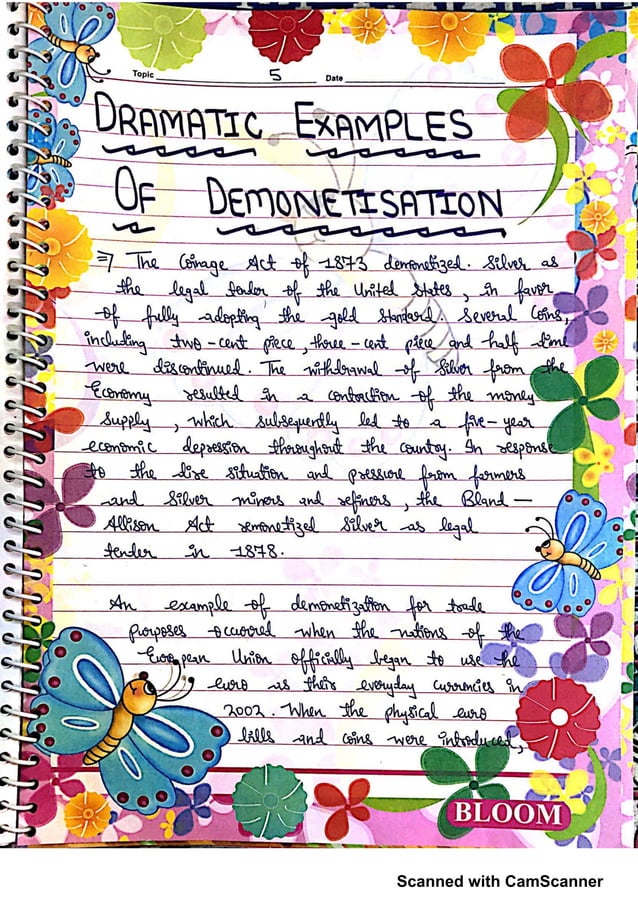 Topic 5 Date
DRAMATIC EXAMPLES
OF DEMONETISATION
⇒ The Coinage Act of 1873 demonetized. Silver as
the legal tender of the United States, in favor
of fully adopting the gold standard. Several Coins,
including two-cent piece, three-cent piece and half dime
were discontinued. The withdrawal of Silver from the
Economy resulted in a contraction of the money
Supply, which subsequently led to a five-year
economic depression throughout the country. In response
to the dire situation and pressure from farmers
and Silver miners and refiners, the Bland-
Allison Act remonetized Silver as legal
tender in 1878.
An example of demonetization for trade
purposes occurred when the nations of the
European Union officially began to use the
euro as their everyday currencies in
2002. When the physical euro
bills and coins were introduced,
BLOOM
Scanned with CamScanner